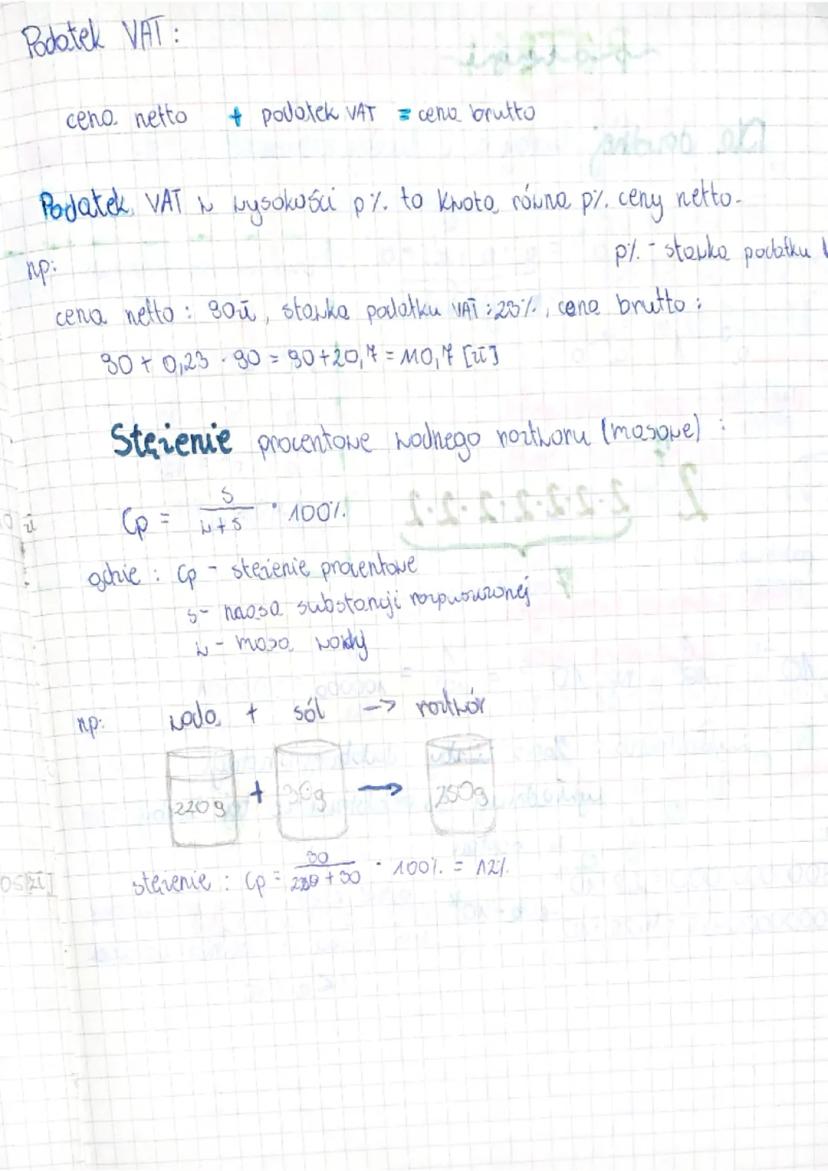 Podatek VAT:
cena netto + podatek VAT = cena brutto
Podatek VAT w wysokości p% to kwota równa p% ceny netto.
p% - stawka podatku
np:
cena netto: 90zł, stawka podatku VAT: 23%, cena brutto:
90 + 0,23 · 90 = 90 + 20,7 = 110,7 [zł]
Stężenie procentowe wodnego roztworu (masowe):
Cp = s/(w+s) · 100%
gdzie: Cp - stężenie procentowe
s - masa substancji rozpuszczonej
w - masa wody
np: woda + sól -> roztwór
220g + 30g -> 250g
stężenie: Cp = 30/(220+30) · 100% = 12%